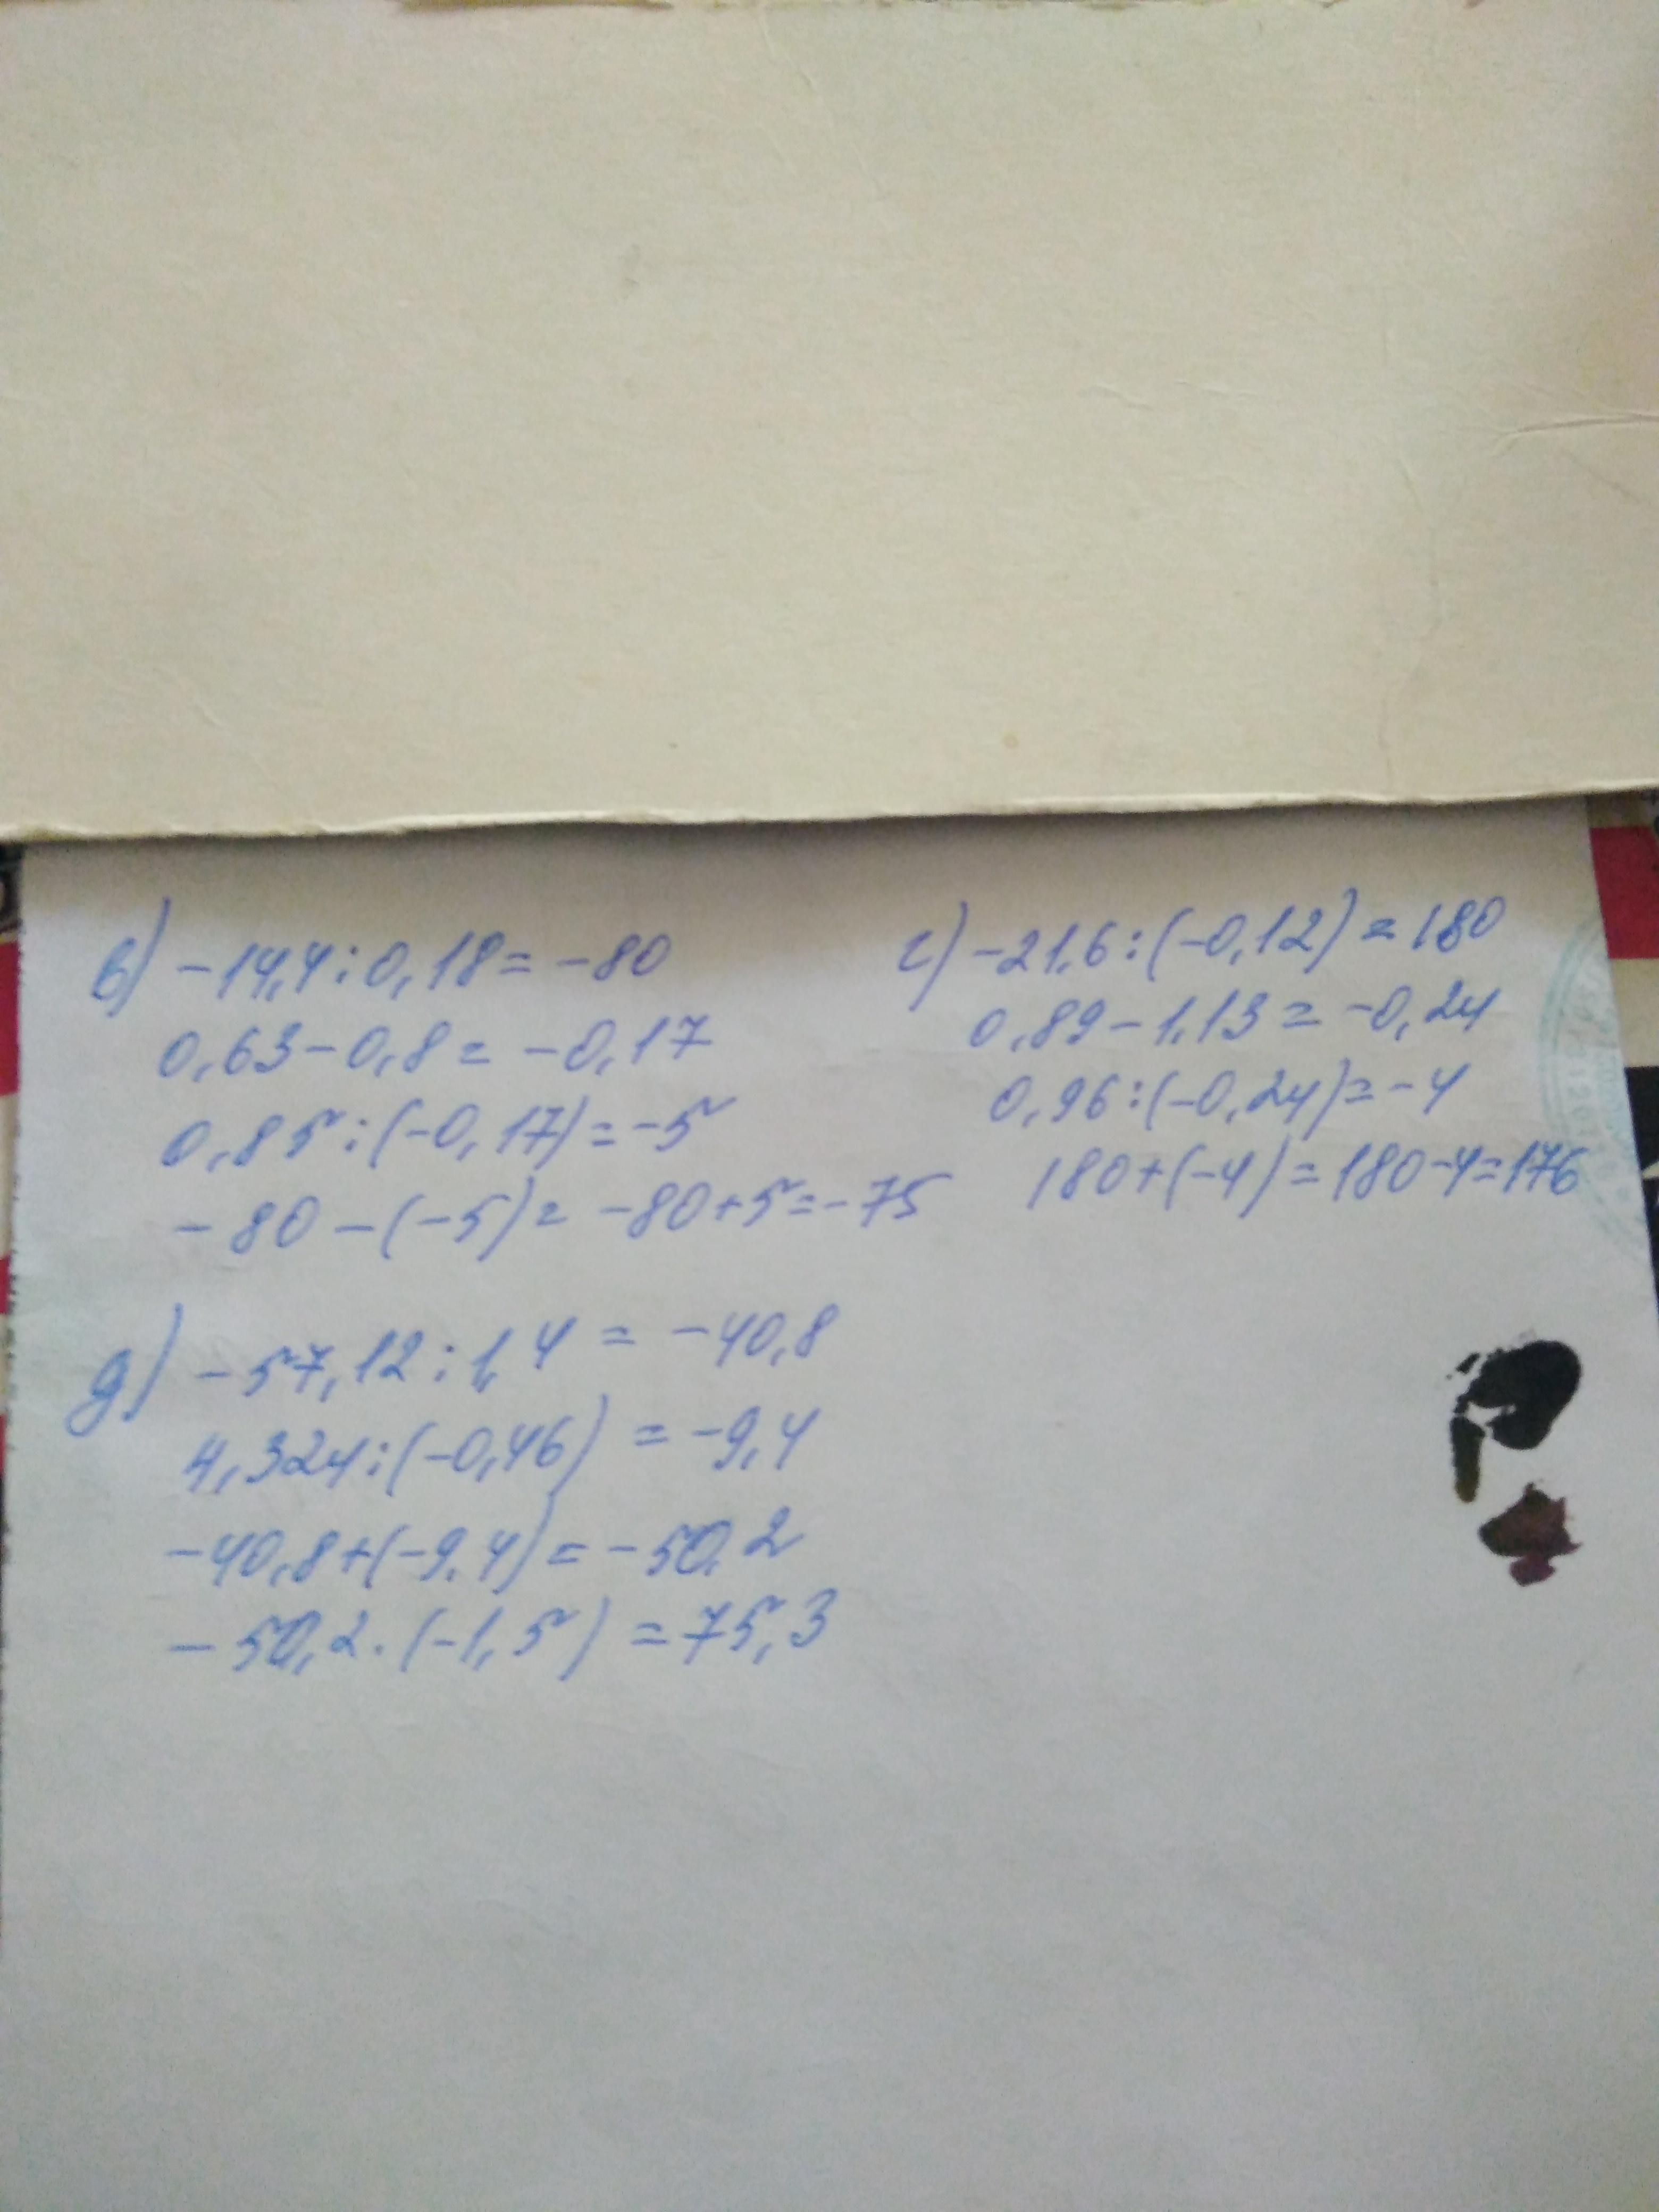 в) -14,4:0,18=-80
0,63-0,8=-0,17
0,85:(-0,17)=-5
-80-(-5)=-80+5=-75
г) -21,6:(-0,12)=180
0,89-1,13=-0,24
0,96:(-0,24)=-4
180+(-4)=180-4=176
д) -57,12:1,4=-40,8
4,324:(-0,46)=-9,4
-40,8+(-9,4)=-50,2
-50,2·(-1,5)=75,3